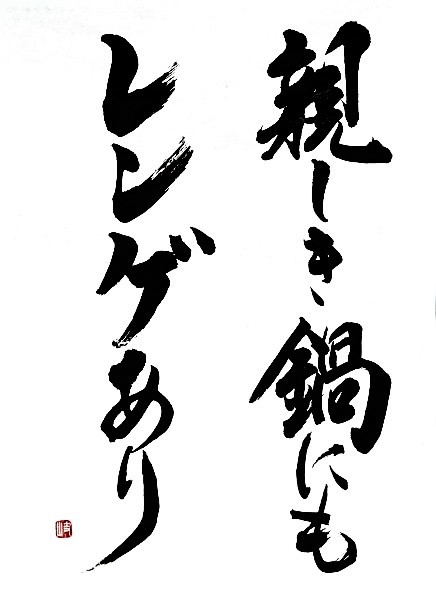 親しき鍋にも
レンゲあり